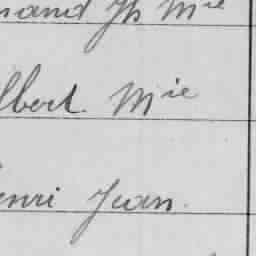 nand Jh Mie
lbert Mie
enri Jean